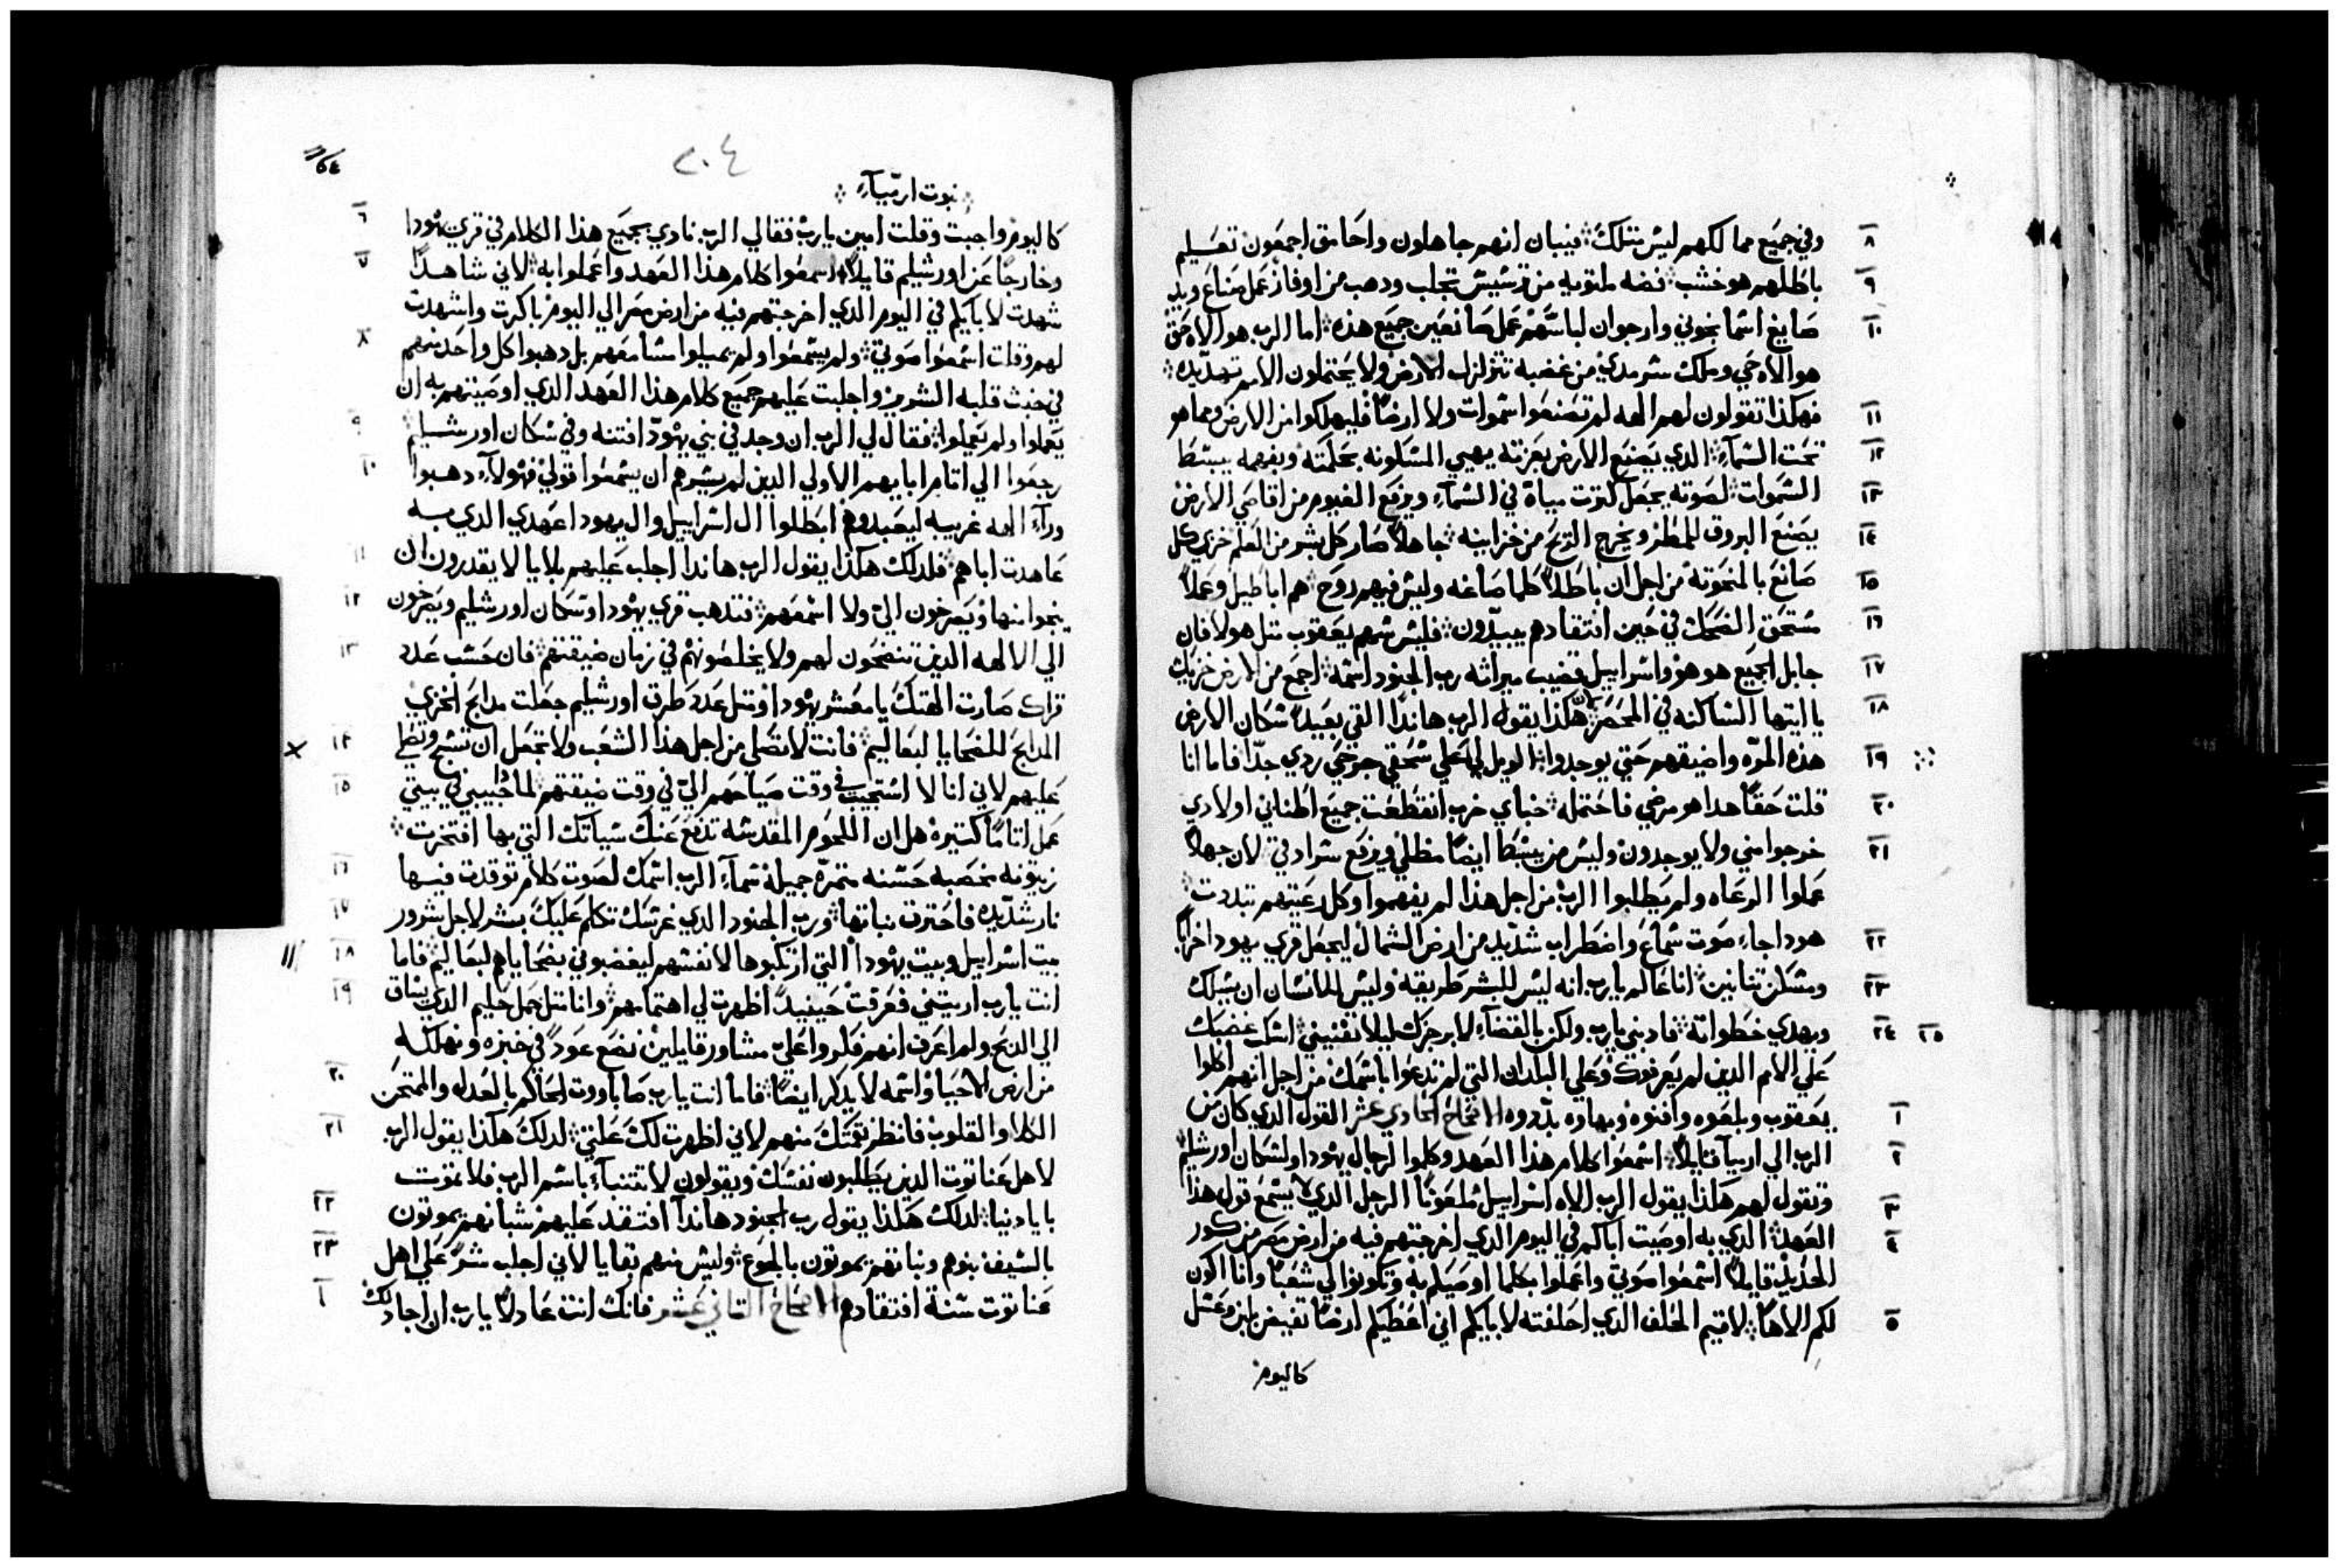 وفي جميع ممالكهم ليس مثلك فيبان انهم جاهلون واحامق اجمعون تعليم
باطلهم هو خشب فضه ملتويه من ترشيش تجلب ودهب من اوفاز عمل صناع ويد
صايغ اسمانجوني وارجوان لباسهم عمل صانعين جميع هذه اما الرب هو الاه حق
هو الاه حي وملك سرمدي من غضبه تتزلزل الارض ولا يحتملون الامم تهديده
فهكذا تقولون لهم الهه لم تصنعوا سموات ولا ارضا فليهلكوا من الارض ومما هو
تحت السماء الذي يصنع الارض بعزته يهيي المسكونه بحكمته وبفهمه يبسط
السموات لصوته يجعل كترت مياة في السماء ويرفع الغيوم من اقاصي الارض
يصنع البروق للمطر ويخرج الريح من خزاينه جاهلا صار كل بشر من العلم خزي كل
صانع بالمنحوتة من اجل ان باطلا كلما صاغه وليس فيهم روح هم اباطيل وعملا
مستحق الضحك في حين افتقادهم يبيدون فليس سهم يعقوب متل هولا فان
جابل الجميع هو هو واسراييل قضيب ميراثه رب الجنود اسمه اجمع من الارض خزيك
يا ايتها الساكنه في المحصر لان هكذا يقول الرب هاندا القي بعيدا سكان الارض
هذه المره واضيقهم حتي يوجدوا الويل لي علي سحقي جرحي ردي جدا فاما انا
قلت حقا هدا هو مرضي فاحتمله خباي خرب انقطعت جميع اطناني اولادي
خرجوا مني ولا يوجدون وليس من يبسط ايضا مظلي ويرفع سرادقي لان جهلا
عملوا الرعاه ولم يطلبوا الرب من اجل هذا لم يفهموا وكل رعيتهم تبددت
هودا جاء صوت سماع واضطراب شديد من ارض الشمال ليجعل قري يهودا خرابا
ومسكن تنانين انا عالم يارب انه ليس للبشر طريقه وليس للانسان ان يسلك
ويهدي خطواته فادبني يارب ولكن بالقضاء لا برجزك ليلا تفنيني اسكب غضبك
علي الامم الذين لم يعرفوك وعلي البلدان التي لم تدعوا باسمك من اجل انهم اكلوا
يعقوب وبلعوه وافنوه وبهاوه بددوه الاصحاح الحادي عشر القول الدي كان من
الرب الي ارميا قايلا اسمعوا كلام هذا العهد وكلموا لرجال يهودا ولسكان اورشليم
وتقول لهم هكذا يقول الرب الاه اسراييل ملعونا الرجل الذي لا يسمع قول هذا
العهد الذي به اوصيت اباكم في اليوم الذي اخرجتهم فيه من ارض مصر من كور
الحديد قايلا اسمعوا صوتي واعملوا بكلما اوصيكم به وتكونوا لي شعبا وانا اكون
لكم الاها لاقيم الحلف الذي احلفته لابايكم اني اعطيكم ارضا تفيض لبن وعسل
كاليوم
٨
٩
١٠
١١
١٢
١٣
١٤
١٥
١٦
١٧
١٨
١٩
٢٠
٢١
٢٢
٢٣
٢٤
٢٥
١
٢
٣
٤
٥
٢٠٤
نبوت ارمياء
كاليوم واجبت وقلت امين يارب فقال لي الرب نادي بجميع هذا الكلام في قري يهودا
وخارجا عن اورشليم قايلا اسمعوا كلام هذا العهد واعملوا به لاني شاهدا
شهدت لابايكم في اليوم الذي اخرجتهم فيه من ارض مصر الي اليوم باكرت واشهدت
لهم وقلت اسمعوا صوتي ولم يسمعوا ولم يميلوا مسامعهم بل دهبوا كل واحد منهم
في خبث قلبه الشرير واجلبت عليهم جميع كلام هذا العهد الذي اوصيتهم به ان
يعملوا ولم يعملوا فقال لي الرب ان وجد في بني يهودا فتنه وفي سكان اورشليم
رجعوا الي اتام ابايهم الاولي الدين لم يسرهم ان يسمعوا قولي فهولاء دهبوا
وراء الهه غريبه ليعبدوهم ابطلوا ال اسراييل وال يهودا عهدي الذي به
عاهدت اباهم فلدلك هكذا يقول الرب هاندا اجلب عليهم بلايا لا يقدرون ان
ينجوا منها ويصرخون الي ولا اسمعهم فتدهب قري يهودا وسكان اورشليم ويصرخون
الي الالهه الذين تنضحون لهم ولا يخلصونهم في زمان ضيقتهم فان حسب عدد
قراك صارت الهتك يا معشر يهودا ومتل عدد طرق اورشليم جعلت مدابح الخزي
المدابح للضحايا لبعاليم فانت لا تصلي من اجل هذا الشعب ولا تجعل ان تسبح وتصلي
عليهم لاني انا لا استجيب في وقت صياحهم الي في وقت ضيقتهم لماذا حبيبي في بيتي
عمل اتاما كتيرة هل ان اللحوم المقدسه تدفع عنك سياتك التي بها افتخرت
زيتونه مخصبه حسنه متمرة جميلة سماء الرب اسمك لصوت كلام توقدت فيها
نار شديده فاحترقت نباتها ورب الجنود الذي غرسك تكلم عليك بشر لاجل شرور
بيت اسراييل وبيت يهودا التي ارتكبوها لانفسهم ليغضبوني بضحاياهم لبعاليم فاما
انت يارب اريتني فعرفت حينيدا اظهرت لي اهتمامهم وانا متل حمل حليم الذي يساق
الي الدبح ولم اعرف انهم فكروا علي مشاور قايلين نضع عودا في خبزه ونهلكه
من ارض الاحيا واسمه لا يدكر ايضا فاما انت يارب صاباووت الحاكم بالعدل والممتحن
الكلا والقلوب فانظر نقمتك منهم لاني اظهرت لك علتي لدلك هكذا يقول الرب
لاهل عناتوت الدين يطلبون نفسك ويقولون لا تتنباء باسم الرب فلا تموت
بايادينا لدلك هكذا يقول رب الجنود هاندا افتقد عليهم شبانهم يموتون
بالسيف بنوهم وبناتهم يموتون بالجوع وليس منهم بقايا لاني اجلب شرا علي اهل
عناتوت سنة افتقادهم الاصحاح التاني عشر فانك انت عادلا يارب ان اجادلك
٦
٧
٨
٩
١٠
١١
١٢
١٣
١٤
١٥
١٦
١٧
١٨
١٩
٢٠
٢١
٢٢
٢٣
١